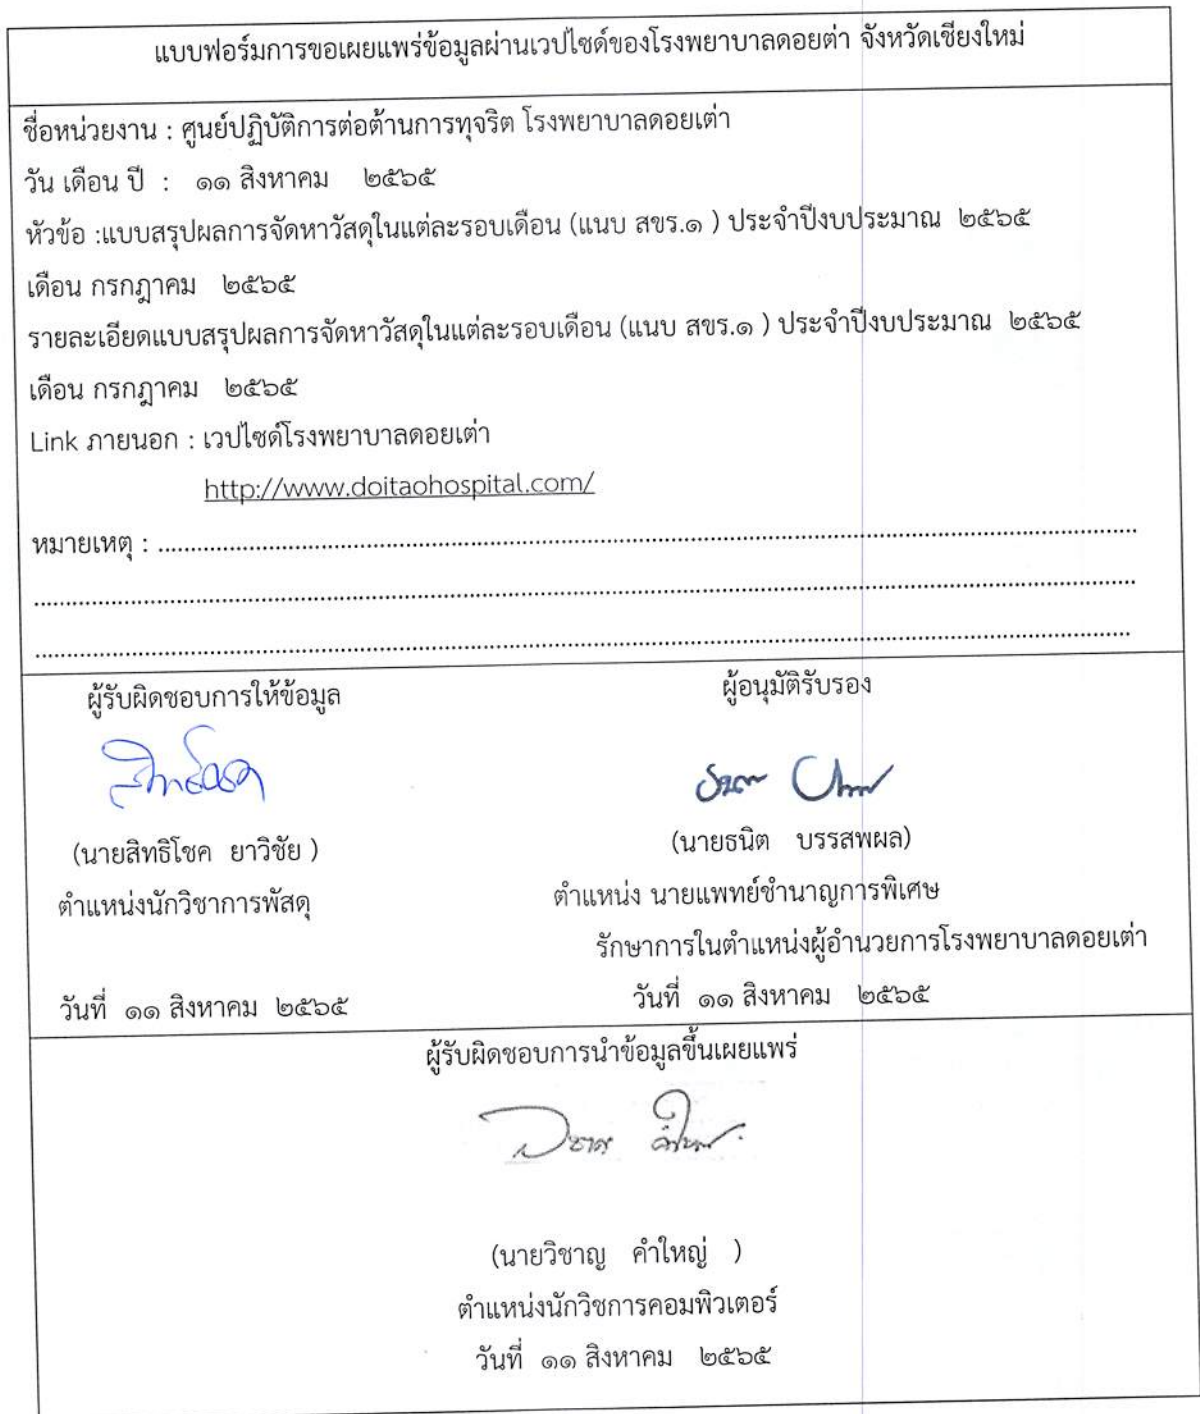 แบบฟอร์มการขอเผยแพร่ข้อมูลผ่านเวปไซด์ของโรงพยาบาลดอยต่า จังหวัดเชียงใหม่
ชื่อหน่วยงาน : ศูนย์ปฏิบัติการต่อต้านการทุจริต โรงพยาบาลดอยเต่า
วัน เดือน ปี : ๑๑ สิงหาคม ๒๕๖๕
หัวข้อ :แบบสรุปผลการจัดหาวัสดุในแต่ละรอบเดือน (แนบ สขร.๑ ) ประจำปีงบประมาณ ๒๕๖๕
เดือน กรกฎาคม ๒๕๖๕
รายละเอียดแบบสรุปผลการจัดหาวัสดุในแต่ละรอบเดือน (แนบ สขร.๑ ) ประจำปีงบประมาณ ๒๕๖๕
เดือน กรกฎาคม ๒๕๖๕
Link ภายนอก : เวปไซด์โรงพยาบาลดอยเต่า
http://www.doitaohospital.com/
หมายเหตุ : ........................................................................
........................................................................
........................................................................
ผู้รับผิดชอบการให้ข้อมูล
(นายสิทธิโชค ยาวิชัย )
ตำแหน่งนักวิชาการพัสดุ
วันที่ ๑๑ สิงหาคม ๒๕๖๕
ผู้อนุมัติรับรอง
(นายธนิต บรรสพผล)
ตำแหน่ง นายแพทย์ชำนาญการพิเศษ
รักษาการในตำแหน่งผู้อำนวยการโรงพยาบาลดอยเต่า
วันที่ ๑๑ สิงหาคม ๒๕๖๕
ผู้รับผิดชอบการนำข้อมูลขึ้นเผยแพร่
(นายวิชาญ คำใหญ่ )
ตำแหน่งนักวิชการคอมพิวเตอร์
วันที่ ๑๑ สิงหาคม ๒๕๖๕